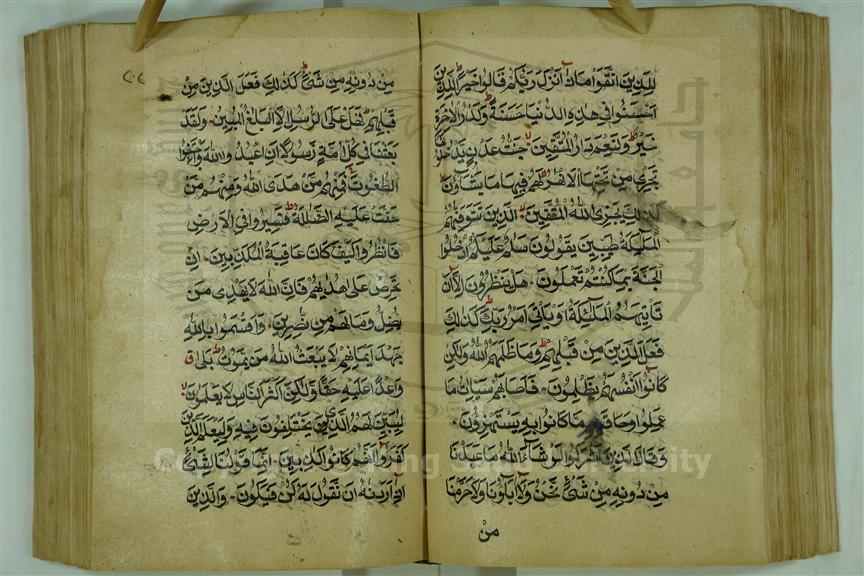 للذين اتقوا ماذا انزل ربكم قالوا خيرا للذين
احسنوا في هذه الدنيا حسنة ولدار الاخرة
خير ولنعم دار المتقين جنت عدن يدخلونها
تجري من تحتها الانهر لهم فيها ما يشاؤن
كذلك يجزي الله المتقين الذين تتوفهم
الملئكة طيبين يقولون سلم عليكم ادخلوا
الجنة بما كنتم تعملون هل ينظرون الا ان
تاتيهم الملئكة او ياتي امر ربك كذلك
فعل الذين من قبلهم وما ظلمهم الله ولكن
كانوا انفسهم يظلمون فاصابهم سيات ما
عملوا وحاق ما كانوا به يستهزؤن
وقال الذين اشركوا لو شاء الله ما عبدنا
من دونه من شئ نحن ولا اباؤنا ولا حرمنا
من
من دونه من شئ كذلك فعل الذين من
قبلهم فهل على الرسل الا البلغ المبين ولقد
بعثنا في كل امة رسولا ان اعبدوا الله واجتنبوا
الطغوت فمنهم من هدى الله ومنهم من
حقت عليه الضللة فسيروا في الارض
فانظروا كيف كان عاقبة المكذبين ان
تحرص على هديهم فان الله لا يهدي من
يضل وما لهم من نصرين واقسموا بالله
جهد ايمانهم لا يبعث الله من يموت بلى
وعدا عليه حقا ولكن اكثر الناس لا يعلمون
ليبين لهم الذي يختلفون فيه وليعلم الذين
كفروا انهم كانوا كذبين انما قولنا لشئ
اذا اردنه ان نقول له كن فيكون والذين